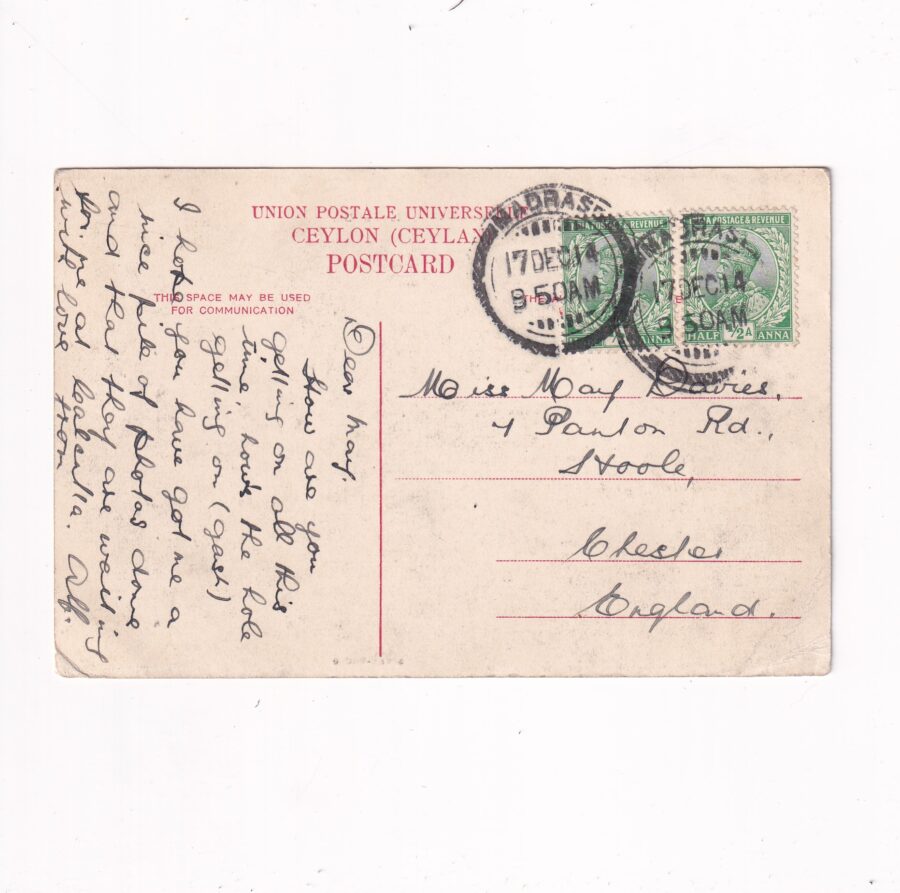 UNION POSTALE UNIVERSELLE
CEYLON (CEYLAN)
POSTCARD
THIS SPACE MAY BE USED
FOR COMMUNICATION
MADRAS
17 DEC 14
9 50 AM
MADRAS
17 DEC 14
9 50 AM
INDIA POSTAGE & REVENUE
HALF 1/2A ANNA
Miss May Davies,
4 Panton Rd.,
Hoole,
Chester
England.
Dear May.
How are you
getting on all this
time how's the hole
getting on (gash)
I hope you have got me a
nice pile of photos done
and that they are waiting
for me at Calcutta. Alf.
with love from